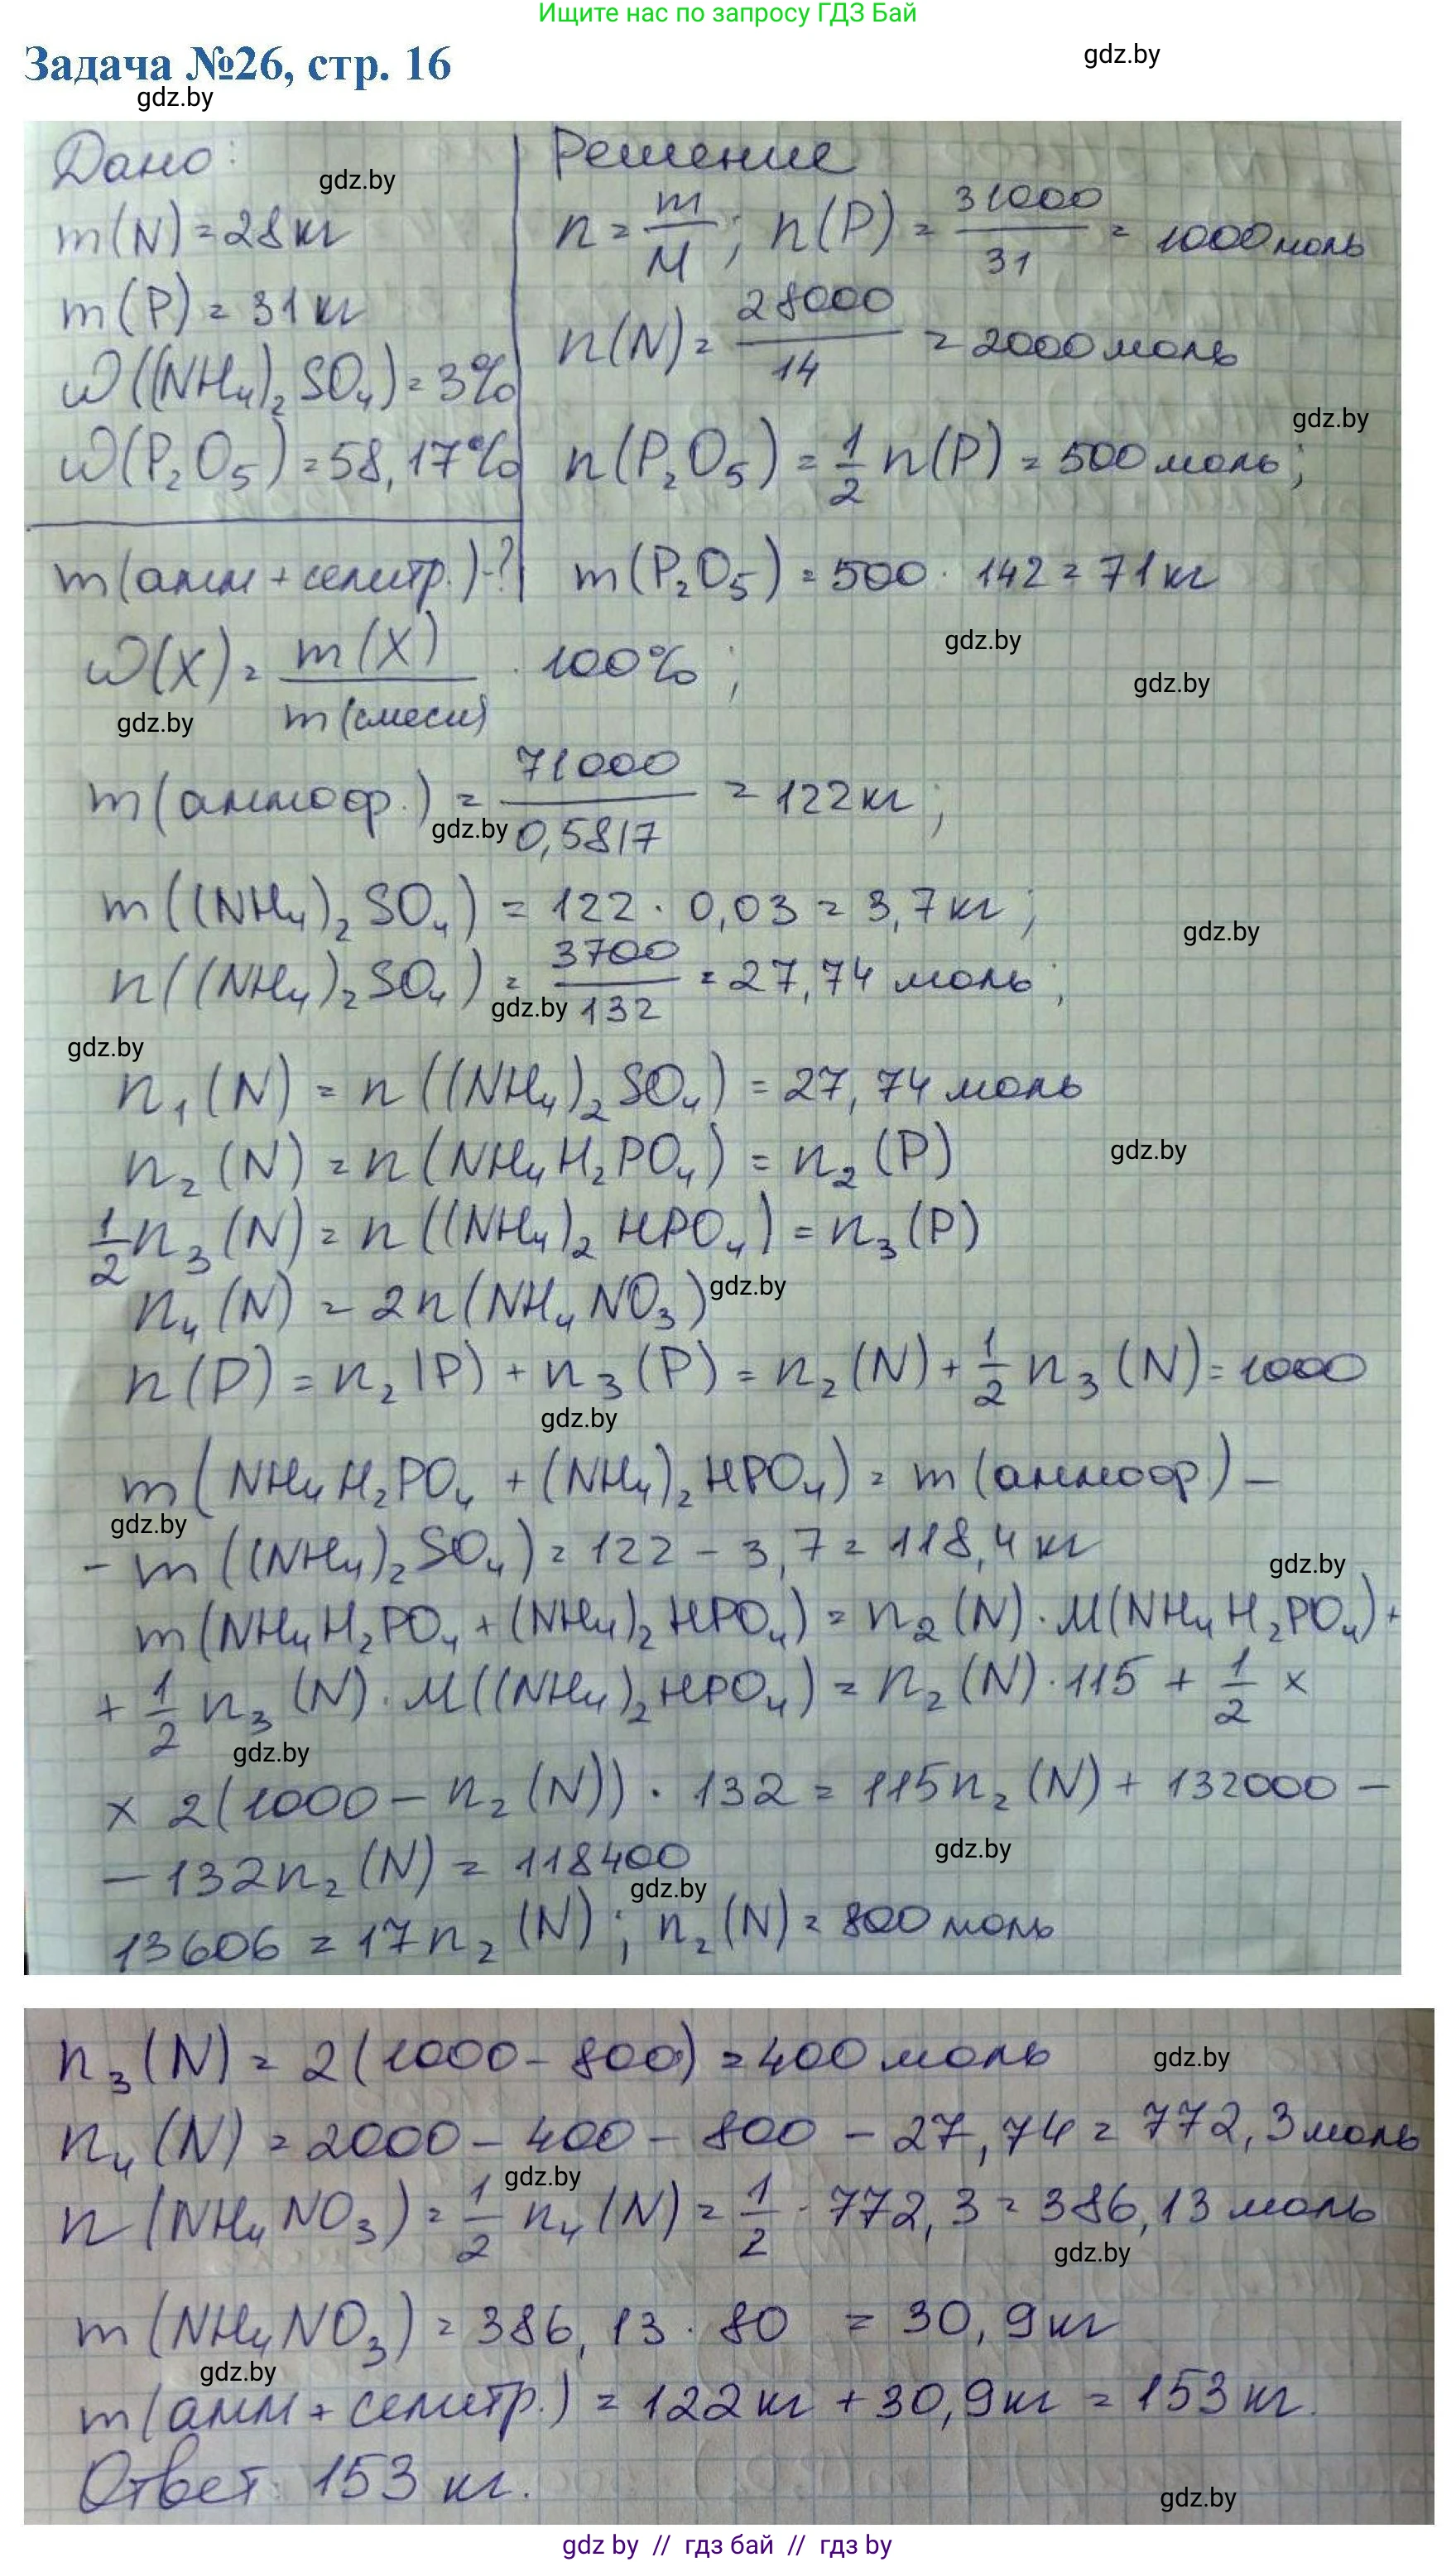 Ищите нас по запросу ГДЗ Бай
Задача №26, стр. 16
gdz.by
gdz.by
Дано:
gdz.by
m(N) = 28 кг
m(P) = 31 кг
ω((NH₄)₂SO₄) = 3%
ω(P₂O₅) = 58,17%
m(амм + селитр.) - ?
Решение
n = m/M; n(P) = 31000/31 = 1000 моль
n(N) = 28000/14 = 2000 моль
gdz.by
n(P₂O₅) = 1/2 n(P) = 500 моль;
m(P₂O₅) = 500 · 142 = 71 кг
gdz.by
ω(X) = m(X)/m(смеси) · 100%;
gdz.by
gdz.by
m(аммоф.) = 71000/0,5817 = 122 кг;
gdz.by
m((NH₄)₂SO₄) = 122 · 0,03 = 3,7 кг;
gdz.by
n((NH₄)₂SO₄) = 3700/132 = 27,74 моль;
gdz.by
gdz.by
n₁(N) = n((NH₄)₂SO₄) = 27,74 моль
n₂(N) = n(NH₄H₂PO₄) = n₂(P)
gdz.by
1/2 n₃(N) = n((NH₄)₂HPO₄) = n₃(P)
n₄(N) = 2n(NH₄NO₃)
gdz.by
n(P) = n₂(P) + n₃(P) = n₂(N) + 1/2 n₃(N) = 1000
gdz.by
m(NH₄H₂PO₄ + (NH₄)₂HPO₄) = m(аммоф) –
gdz.by
– m((NH₄)₂SO₄) = 122 – 3,7 = 118,4 кг
gdz.by
m(NH₄H₂PO₄ + (NH₄)₂HPO₄) = n₂(N) · M(NH₄H₂PO₄) +
+ 1/2 n₃(N) · M((NH₄)₂HPO₄) = n₂(N) · 115 + 1/2 ×
gdz.by
× 2(1000 – n₂(N)) · 132 = 115n₂(N) + 132000 –
gdz.by
– 132n₂(N) = 118400
gdz.by
13606 = 17n₂(N); n₂(N) = 800 моль
n₃(N) = 2(1000 – 800) = 400 моль
gdz.by
n₄(N) = 2000 – 400 – 800 – 27,74 = 772,3 моль
gdz.by
n(NH₄NO₃) = 1/2 n₄(N) = 1/2 · 772,3 = 386,13 моль
gdz.by
m(NH₄NO₃) = 386,13 · 80 = 30,9 кг
gdz.by
m(амм + селитр.) = 122 кг + 30,9 кг = 153 кг.
Ответ: 153 кг.
gdz.by
gdz by // гдз бай // гдз by